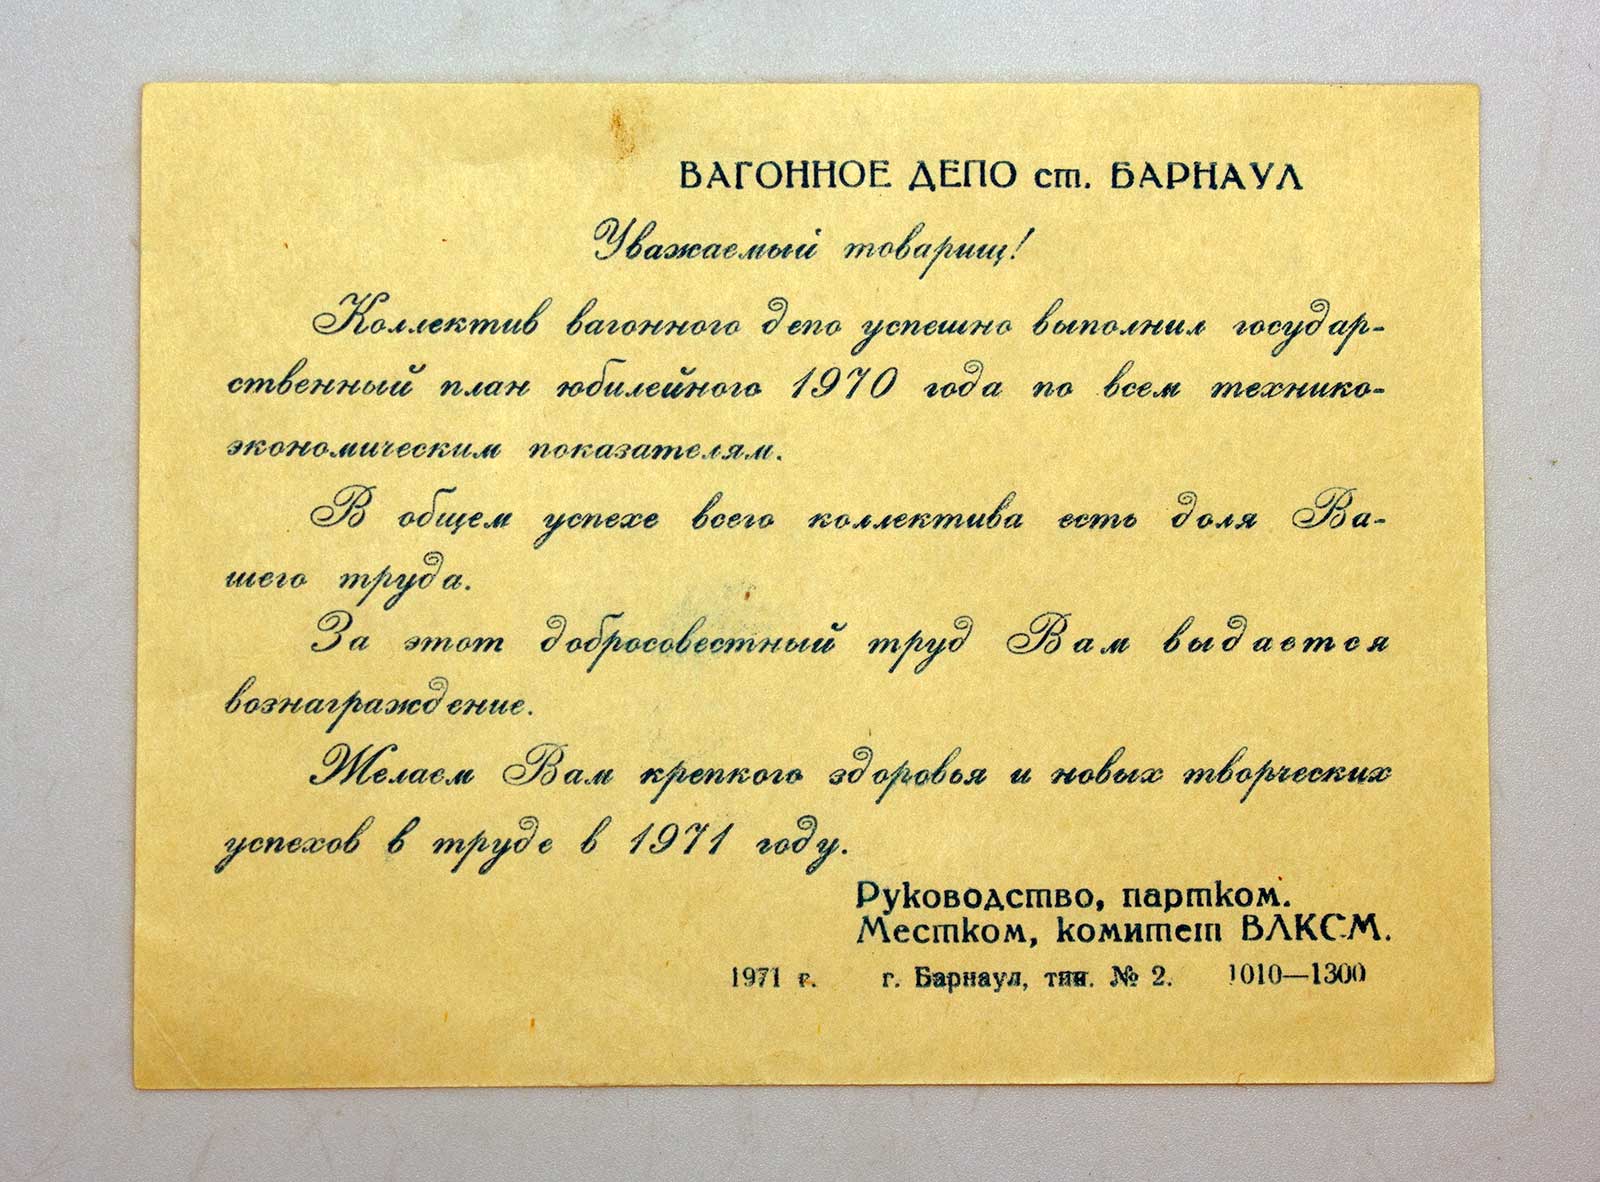 ВАГОННОЕ ДЕПО ст. БАРНАУЛ
Уважаемый товарищ!
Коллектив вагонного депо успешно выполнил государ-
ственный план юбилейного 1970 года по всем технико-
экономическим показателям.
В общем успехе всего коллектива есть доля Ва-
шего труда.
За этот добросовестный труд Вам выдается
вознаграждение.
Желаем Вам крепкого здоровья и новых творческих
успехов в труде в 1971 году.
Руководство, партком.
Местком, комитет ВЛКСМ.
1971 г. г. Барнаул, тип. № 2. 1010—1300